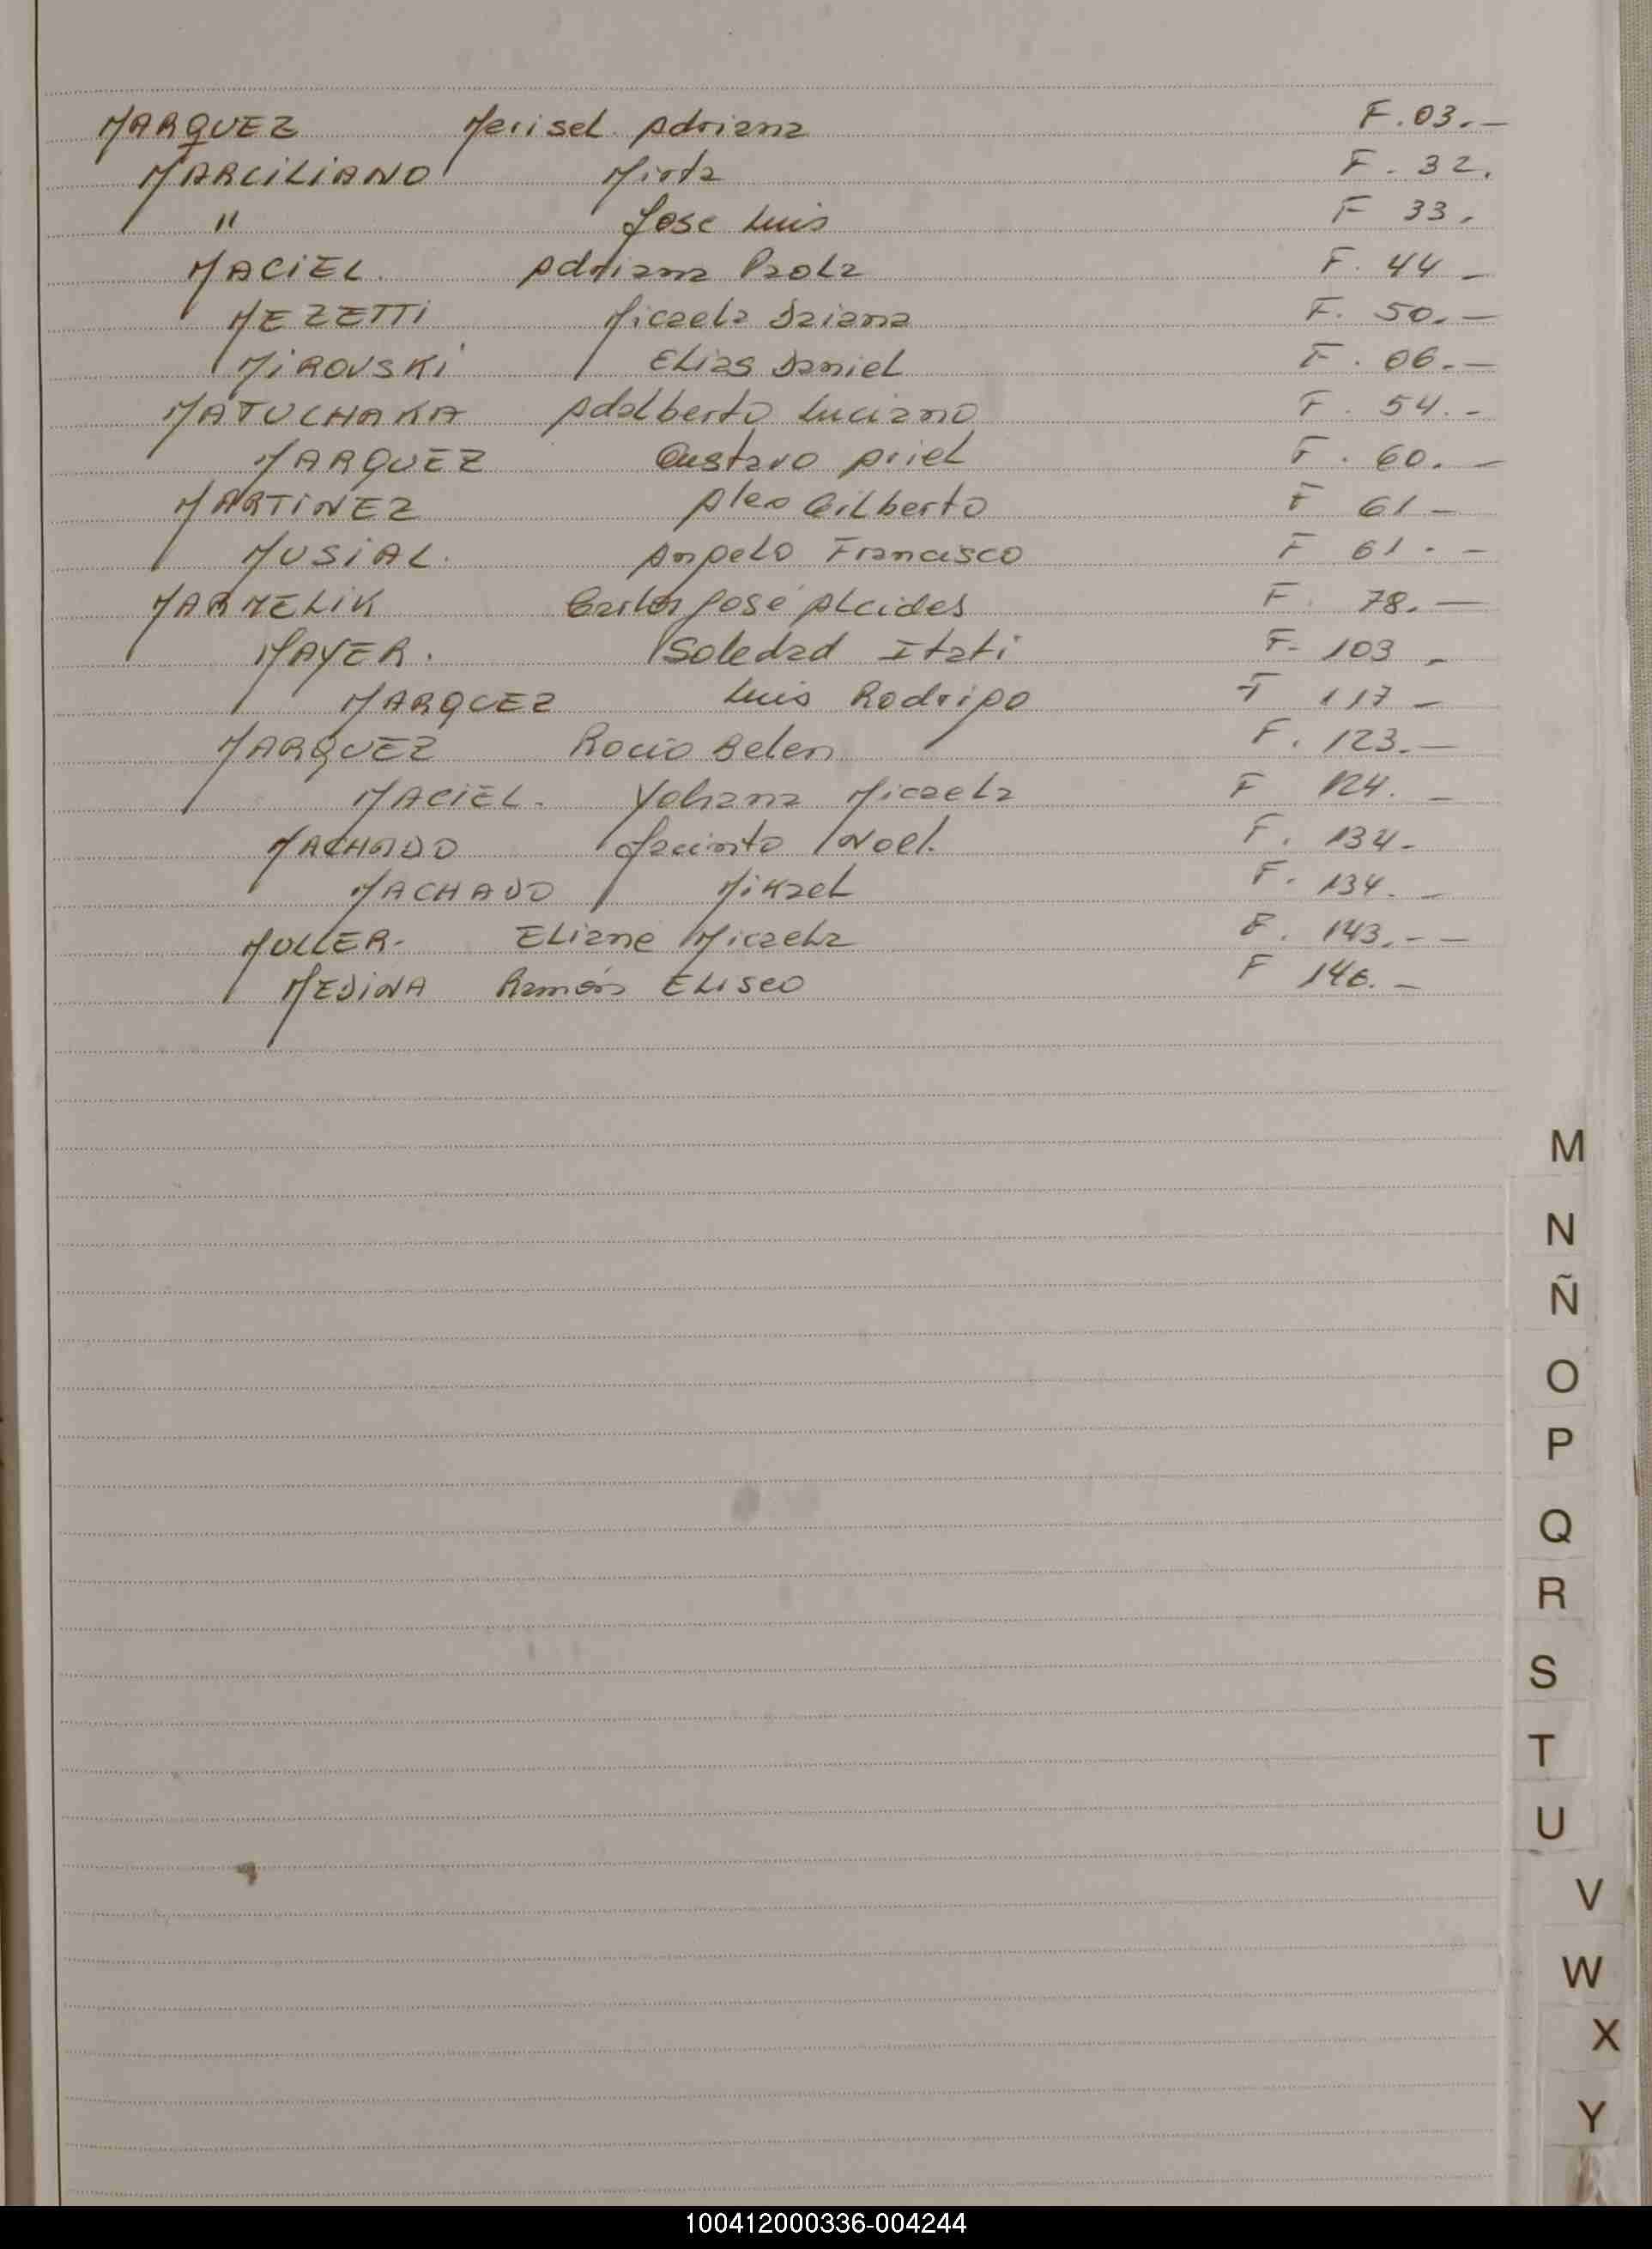 MARQUEZ Marisel Adriana F. 03.-
MARCILIANO Mirta F. 32.
" Jose Luis F 33.
MACIEL. Adriana Paola F. 44 -
MEZETTI Micaela Daiana F. 50.-
MIROVSKI Elias Daniel F. 06.-
MATUCHAKA Adalberto Luciano F. 54.-
MARQUEZ Gustavo Ariel F. 60.-
MARTINEZ Alex Gilberto F 61 -
MUSIAL. Angelo Francisco F 61.-
MARMELIK Carlos José Alcides F. 78.-
MAYER. Soledad Itati F- 103 -
MARQUEZ Luis Rodrigo F 117 -
MARQUEZ Rocio Belen F. 123.-
MACIEL. Yohana Micaela F 124. -
MACHADO Jacinto Noel. F. 134-
MACHADO Mikael F. 134. -
MULLER- Eliane Micaela F. 143.--
MEDINA Ramón Eliseo F 146.-
M
N
Ñ
O
P
Q
R
S
T
U
V
W
X
Y
100412000336-004244